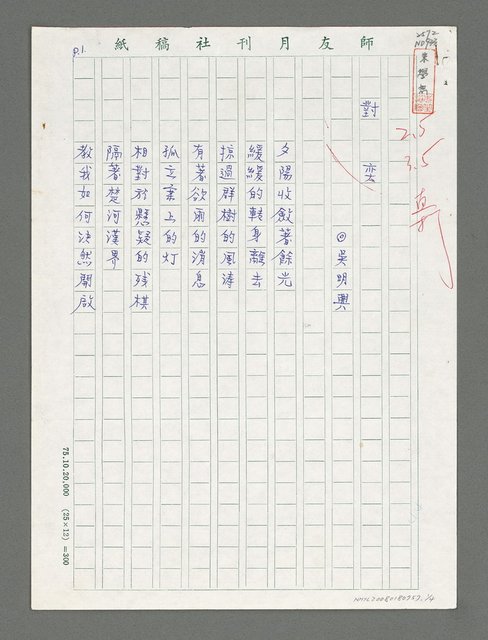 師友月刊社稿紙
P.1.
對弈
◎吳明興
夕陽收斂著餘光
緩緩的轉身離去
掠過群樹的風濤
有著欲雨的消息
孤立案上的灯
相對於懸疑的残棋
隔著楚河漢界
教我如何決然開啟
2.5
3.5
75.10.20,000 (25×12)=300